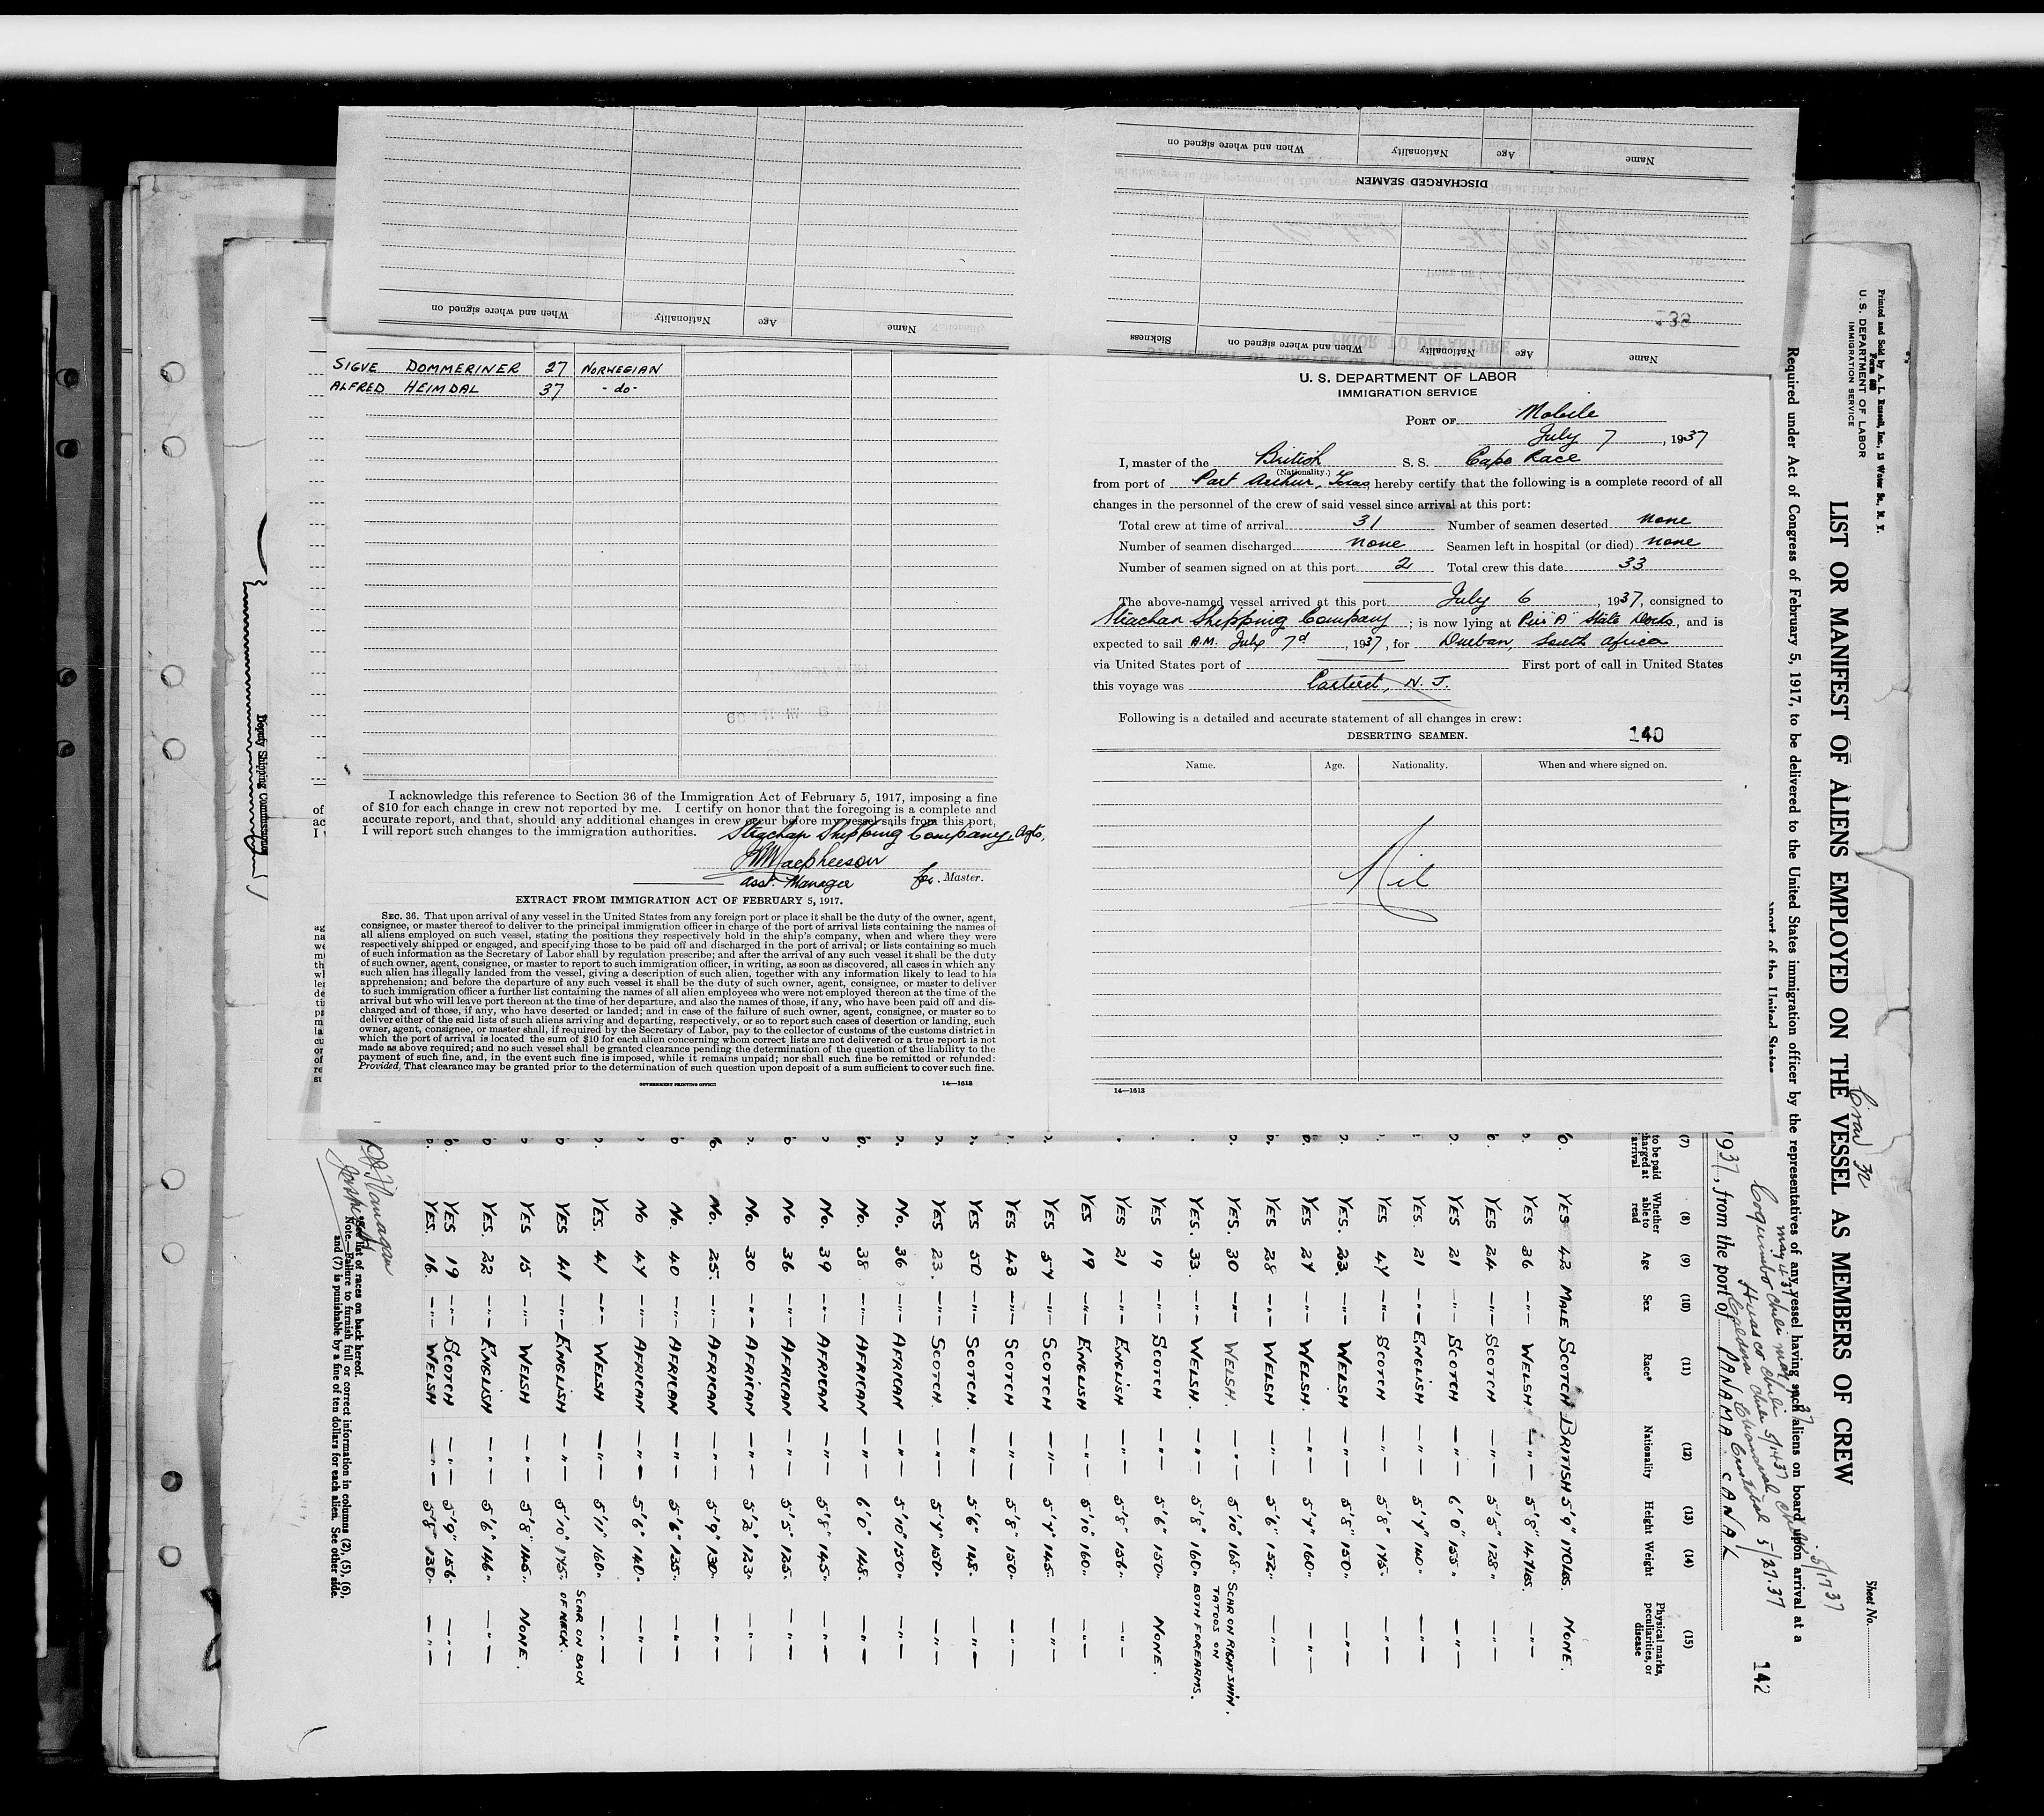 Name
Age
Nationality
When and where signed on
DISCHARGED SEAMEN
Name
Age
Nationality
When and where signed on
Sickness
Name
Age
Nationality
When and where signed on
SIGVE DOMMERINER 27 NORWEGIAN
ALFRED HEIMDAL 37 -do-
I acknowledge this reference to Section 36 of the Immigration Act of February 5, 1917, imposing a fine
of $10 for each change in crew not reported by me. I certify on honor that the foregoing is a complete and
accurate report, and that, should any additional changes in crew occur before my vessel sails from this port,
I will report such changes to the immigration authorities. Strachan Shipping Company, Agts,
Macpherson
Asst. Manager for Master.
EXTRACT FROM IMMIGRATION ACT OF FEBRUARY 5, 1917.
SEC. 36. That upon arrival of any vessel in the United States from any foreign port or place it shall be the duty of the owner, agent,
consignee, or master thereof to deliver to the principal immigration officer in charge of the port of arrival lists containing the names of
all aliens employed on such vessel, stating the positions they respectively hold in the ship's company, when and where they were
respectively shipped or engaged, and specifying those to be paid off and discharged in the port of arrival; or lists containing so much
of such information as the Secretary of Labor shall by regulation prescribe; and after the arrival of any such vessel it shall be the duty
of such owner, agent, consignee, or master to report to such immigration officer, in writing, as soon as discovered, all cases in which any
such alien has illegally landed from the vessel, giving a description of such alien, together with any information likely to lead to his
apprehension; and before the departure of any such vessel it shall be the duty of such owner, agent, consignee, or master to deliver
to such immigration officer a further list containing the names of all alien employees who were not employed thereon at the time of the
arrival but who will leave port thereon at the time of her departure, and also the names of those, if any, who have been paid off and dis-
charged and of those, if any, who have deserted or landed; and in case of the failure of such owner, agent, consignee, or master so to
deliver either of the said lists of such aliens arriving and departing, respectively, or so to report such cases of desertion or landing, such
owner, agent, consignee, or master shall, if required by the Secretary of Labor, pay to the collector of customs of the customs district in
which the port of arrival is located the sum of $10 for each alien concerning whom correct lists are not delivered or a true report is not
made as above required; and no such vessel shall be granted clearance pending the determination of the question of the liability to the
payment of such fine, and, in the event such fine is imposed, while it remains unpaid; nor shall such fine be remitted or refunded:
Provided, That clearance may be granted prior to the determination of such question upon deposit of a sum sufficient to cover such fine.
GOVERNMENT PRINTING OFFICE 14—1613
U. S. DEPARTMENT OF LABOR
IMMIGRATION SERVICE
PORT OF Mobile
July 7, 1937
I, master of the British S. S. Cape Race
(Nationality.)
from port of Port Arthur, Texas, hereby certify that the following is a complete record of all
changes in the personnel of the crew of said vessel since arrival at this port:
Total crew at time of arrival 31 Number of seamen deserted none
Number of seamen discharged none Seamen left in hospital (or died) none
Number of seamen signed on at this port 2 Total crew this date 33
The above-named vessel arrived at this port July 6, 1937, consigned to
Strachan Shipping Company; is now lying at Pier A State Docks, and is
expected to sail A.M. July 7d, 1937, for Durban, South Africa
via United States port of First port of call in United States
this voyage was Carteret, N. J.
Following is a detailed and accurate statement of all changes in crew:
DESERTING SEAMEN. 140
Name. Age. Nationality. When and where signed on.
Nil
14—1613
Deputy Shipping Commissioner
Printed and Sold by A. L. Russell, Inc., 13 Water St., N. Y.
Form 680
U. S. DEPARTMENT OF LABOR
IMMIGRATION SERVICE
Sheet No.
LIST OR MANIFEST OF ALIENS EMPLOYED ON THE VESSEL AS MEMBERS OF CREW
Crew 32
Required under Act of Congress of February 5, 1917, to be delivered to the United States immigration officer by the representatives of any vessel having such aliens on board upon arrival at a
port of the United States
Coquimbo Chili may
Huasco Chili 5/14 37
Caldera Chili
Cristobal 5/27.37
1937, from the port of PANAMA CANAL
142
(7) (8) (9) (10) (11) (12) (13) (14) (15)
to be paid
charged at
arrival
Whether
able to
read
Age
Sex
Race*
Nationality
Height
Weight
Physical marks,
peculiarities, or
disease
YES 42 MALE SCOTCH BRITISH 5'9" 170lbs. NONE.
YES 36 -"- WELSH. -"- 5'8" 147lbs. -"-
YES 24 -"- SCOTCH -"- 5'5" 128" -"-
YES 21 -"- SCOTCH -"- 6'0" 155" -"-
YES. 21 -"- ENGLISH -"- 5'4" 140" -"-
YES 47 -"- SCOTCH -"- 5'8" 175" -"-
YES. 23. -"- WELSH -"- 5'8" 150" -"-
YES 27 -"- WELSH. -"- 5'7" 160" -"-
YES 28 -"- WELSH -"- 5'6" 152" -"-
YES. 30 -"- WELSH. -"- 5'10" 168" SCAR ON RIGHT SHIN.
YES. 33. -"- WELSH. -"- 5'8" 160" TATOOS ON BOTH FOREARMS.
YES 19 -"- SCOTCH -"- 5'6" 150" NONE.
YES 21 -"- ENGLISH -"- 5'8" 156" -"-
YES 19 -"- ENGLISH -"- 5'10" 160" -"-
YES 57 -"- SCOTCH -"- 5'7" 145" -"-
YES 43 -"- SCOTCH -"- 5'8" 150" -"-
YES 50 -"- SCOTCH. -"- 5'6" 148" -"-
YES 23. -"- SCOTCH. -"- 5'7" 150" -"-
NO. 36 -"- AFRICAN -"- 5'10" 150" -"-
NO. 38 -"- AFRICAN -"- 6'0" 148" -"-
NO. 39 -"- AFRICAN -"- 5'8" 145" -"-
NO 36 -"- AFRICAN -"- 5'5" 125" -"-
NO. 30 -"- AFRICAN -"- 5'2" 123" -"-
NO. 25. -"- AFRICAN -"- 5'9" 130" -"-
NO. 40 -"- AFRICAN -"- 5'6" 135" -"-
NO 47 -"- AFRICAN -"- 5'6" 140" -"-
YES. 41 -"- WELSH -"- 5'11" 160" -"-
YES 41 -"- ENGLISH -"- 5'10" 175" SCAR ON BACK OF NECK.
YES 15 -"- WELSH -"- 5'8" 145" NONE.
YES. 22 -"- ENGLISH -"- 5'6" 146" -"-
YES 19 -"- SCOTCH -"- 5'9" 156" -"-
YES. 16. -"- WELSH -"- 5'8" 130" -"-
list of races on back hereof.
Note.—Failure to furnish full or correct information in columns (2), (5), (6),
and (7) is punishable by a fine of ten dollars for each alien. See other side.